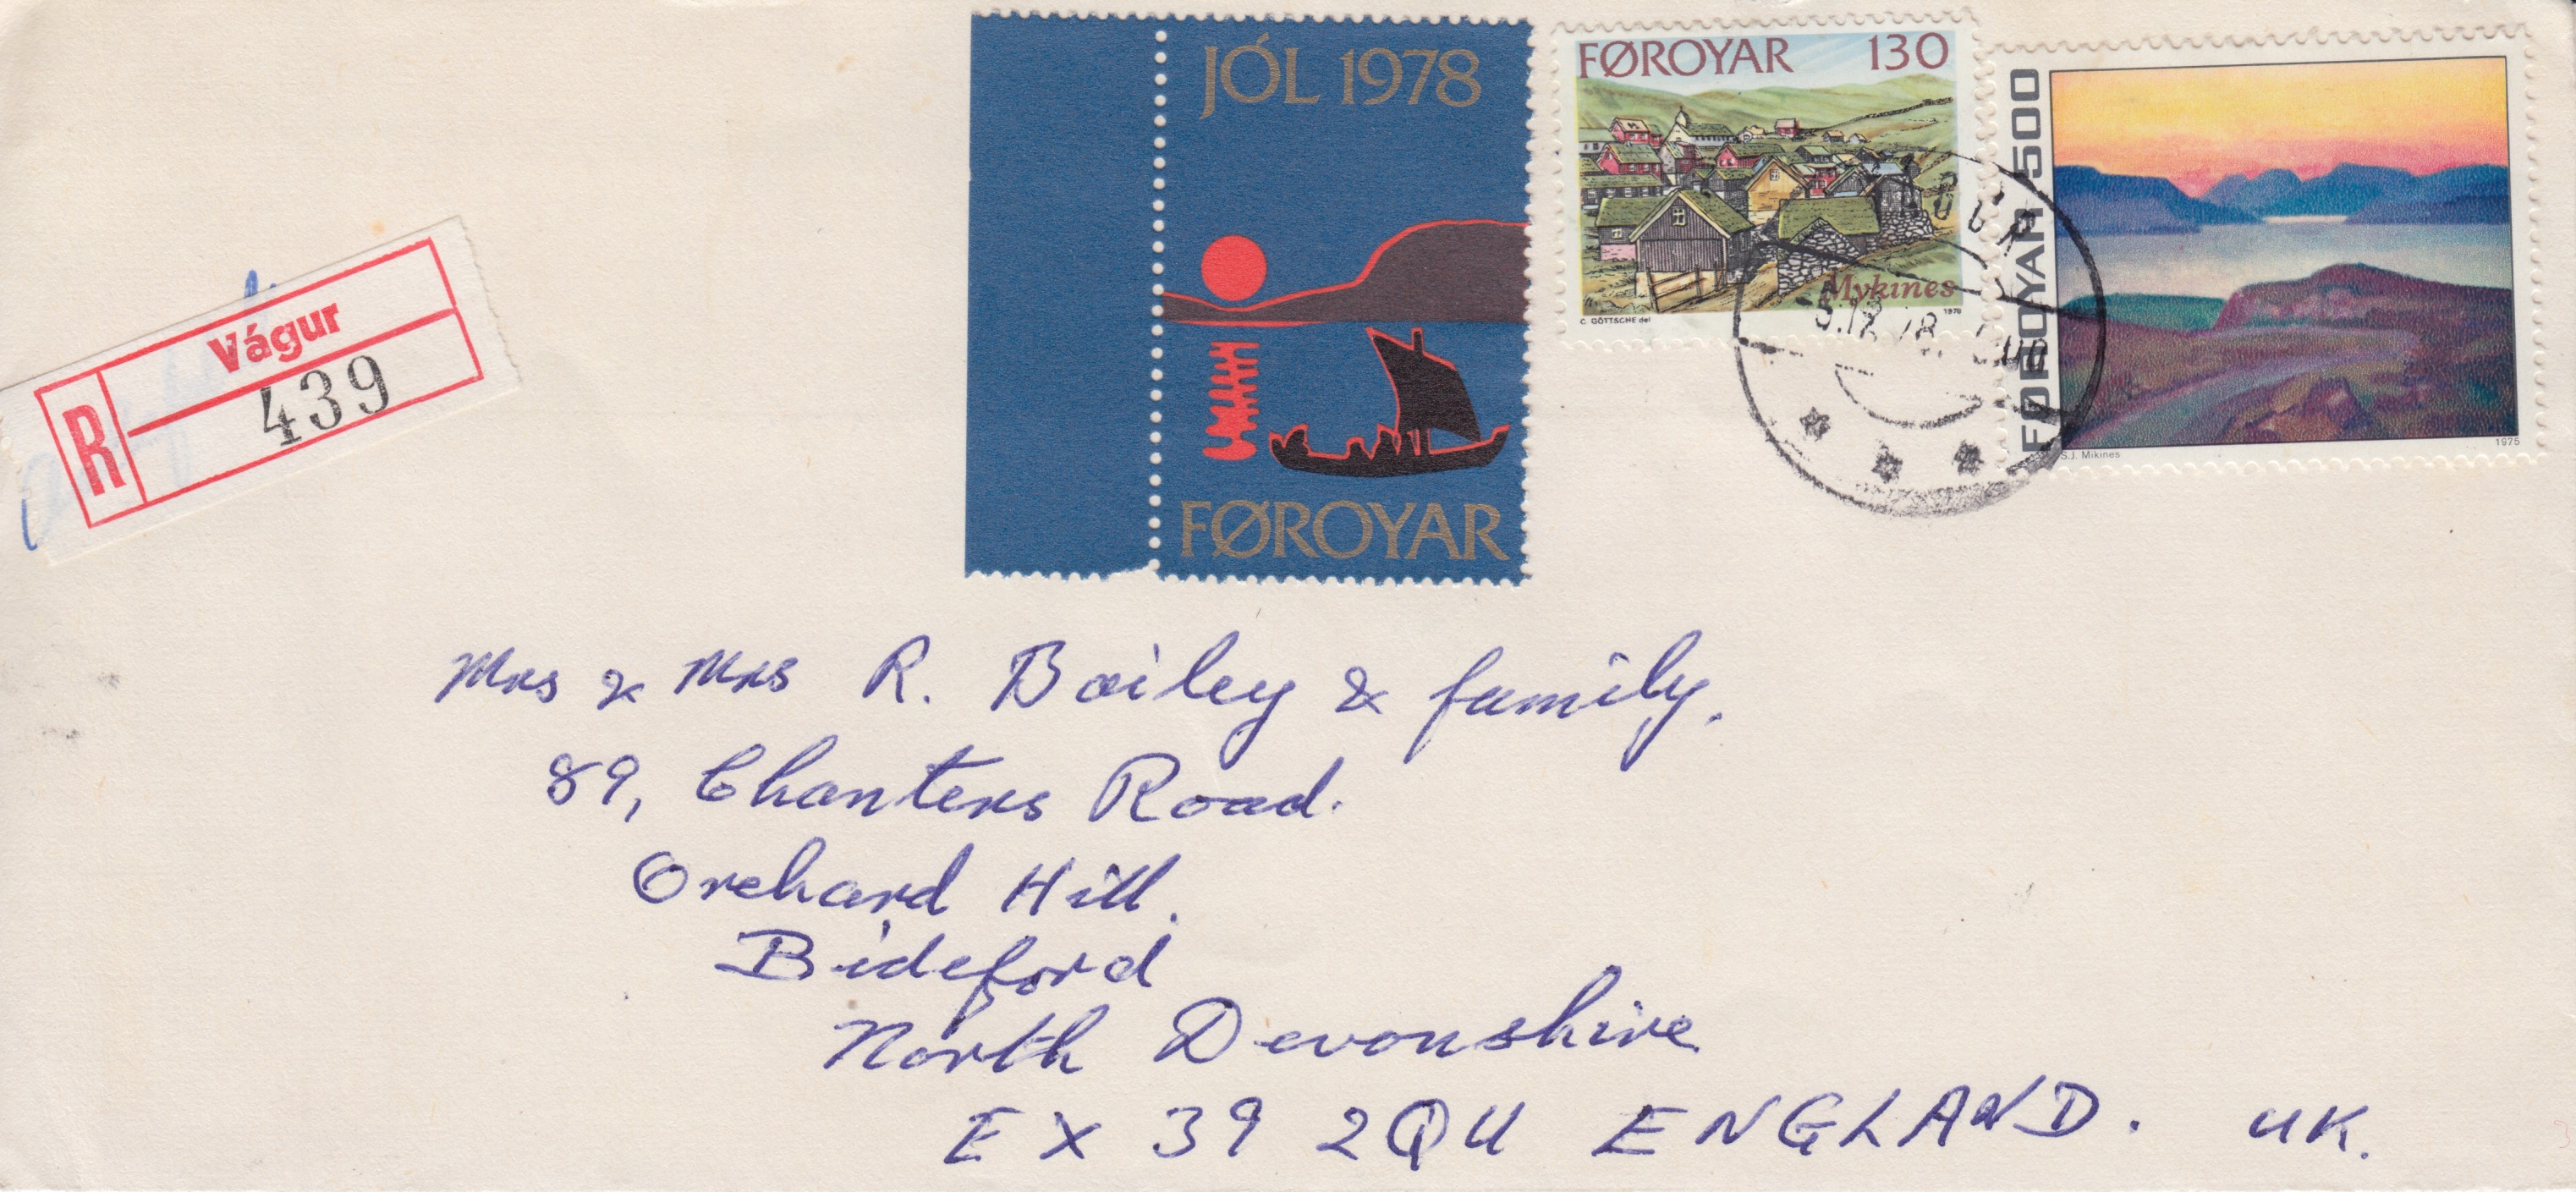 JÓL 1978
FØROYAR
FØROYAR 130
Mykines
C. GÖTTSCHE del
1978
FØROYAR 500
S.J. Mikines
1975
Vágur
R
439
Mrs & Mrs R. Bailey & family.
89, Chanters Road.
Orchard Hill.
Bideford
North Devonshire
EX 39 2QU ENGLAND. UK.